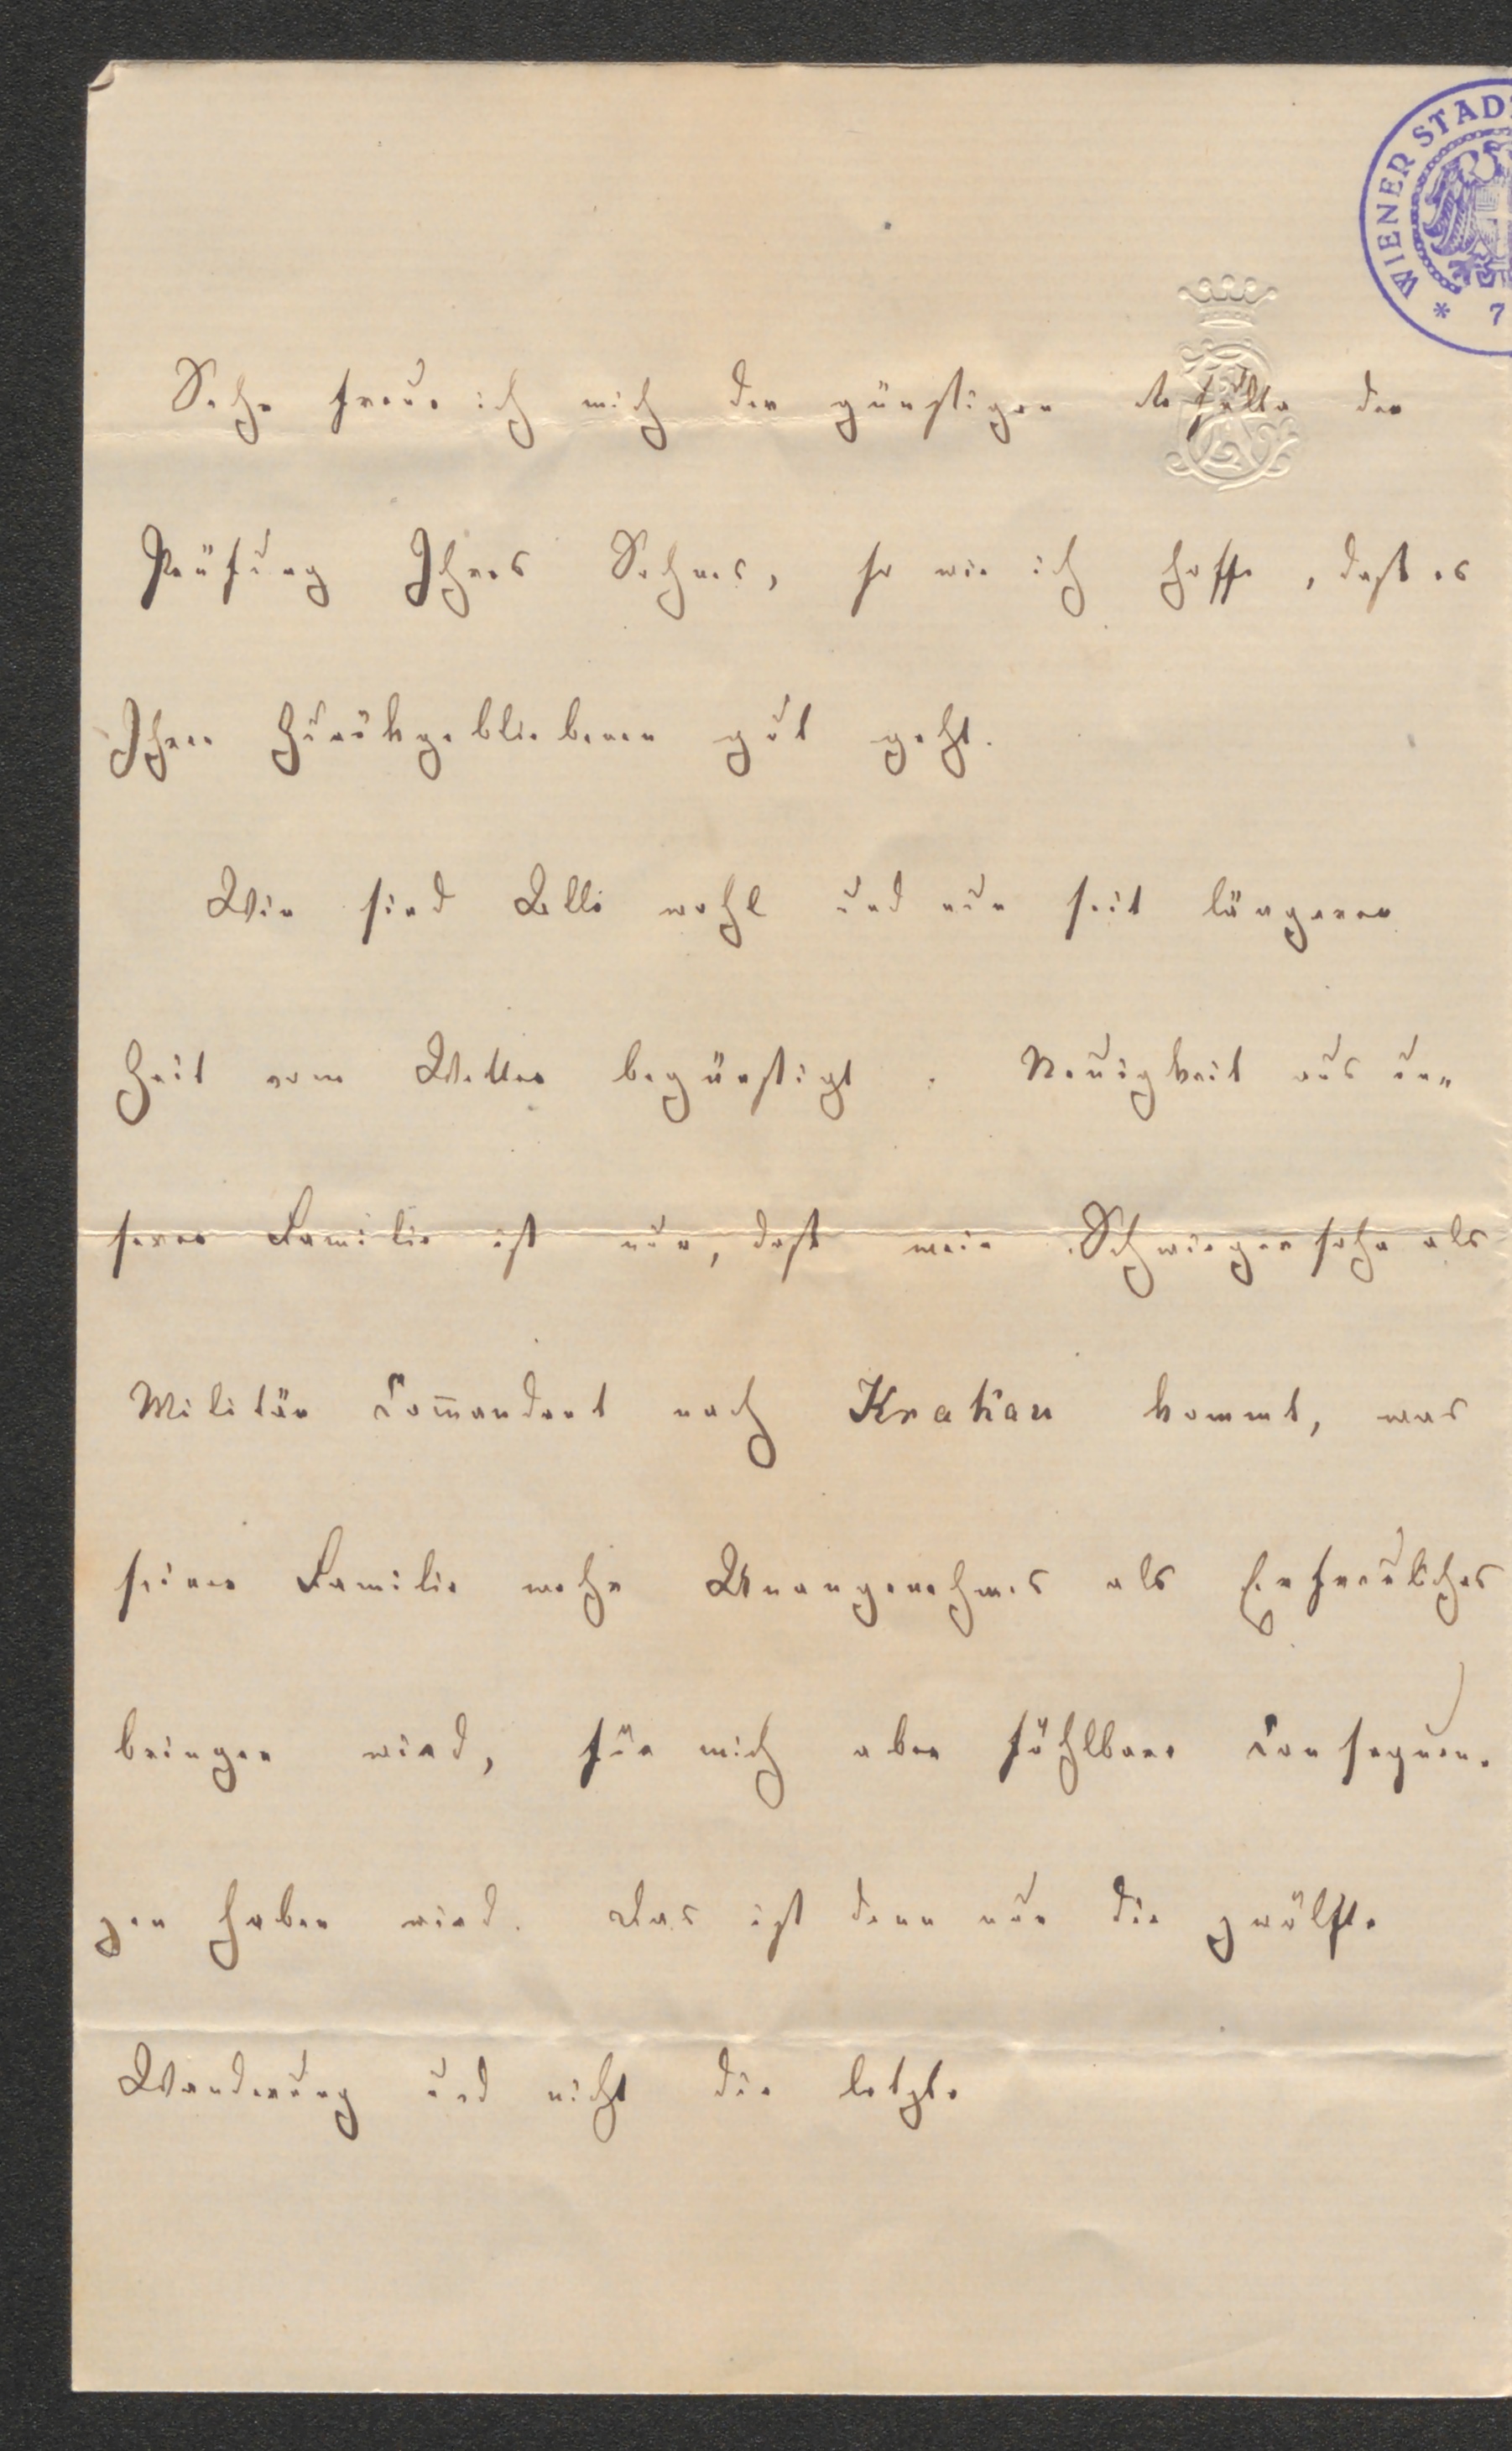 WIENER STAD
* 7
Sehr freue ich mich der günstigen der
Prüfung Ihres Sohnes, so wie ich hoffe, dast es
Ihren Zurükgebliebenen gut geht.
Wir sind Alle wohl und nun seit längerer
Zeit vom Wetter begünstigt. Neuigkeit aus un„
serer Familie ist nur, dast mein Schwiegersohn als
Militär Com̄andant nach Krakau kommt, was
seiner Familie mehr Unangenehmes als Erfreuliches
bringen wird, für mich aber fühlbare Consequen.
zen haben wird. Das ist denn nun die zwölfte
Wanderung und nicht die letzte